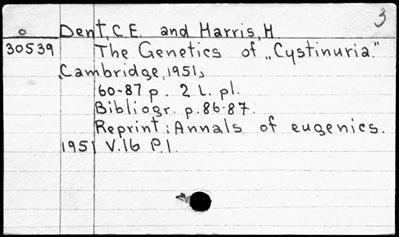 3
o Dent, C.E. and Harris, H.
30539 The Genetics of „Cystinuria."
Cambridge, 1951,
60-87 p. 2 L. pl.
Bibliogr. p. 86-87.
Reprint: Annals of eugenics.
1951 V.16 P.1